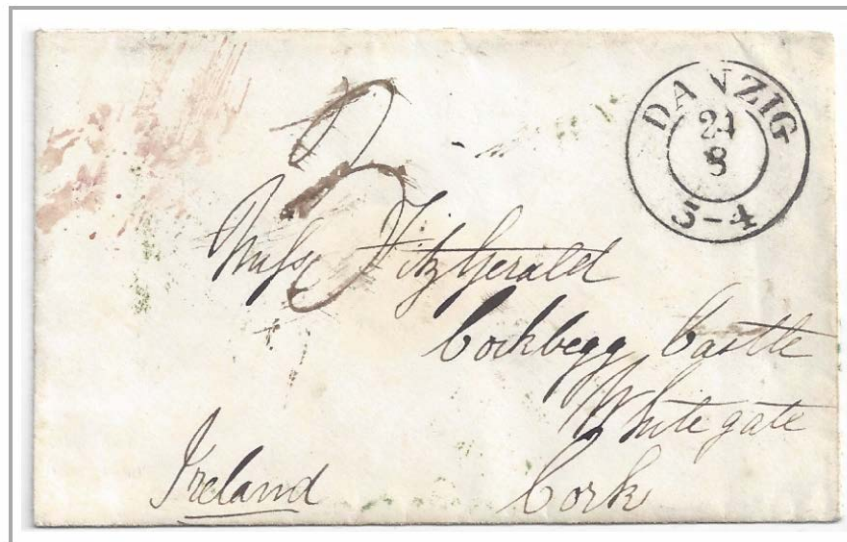 DANZIG
24
8
3-4
3
Miss FitzGerald
Corkbegg Castle
Whitegate
Cork
Ireland